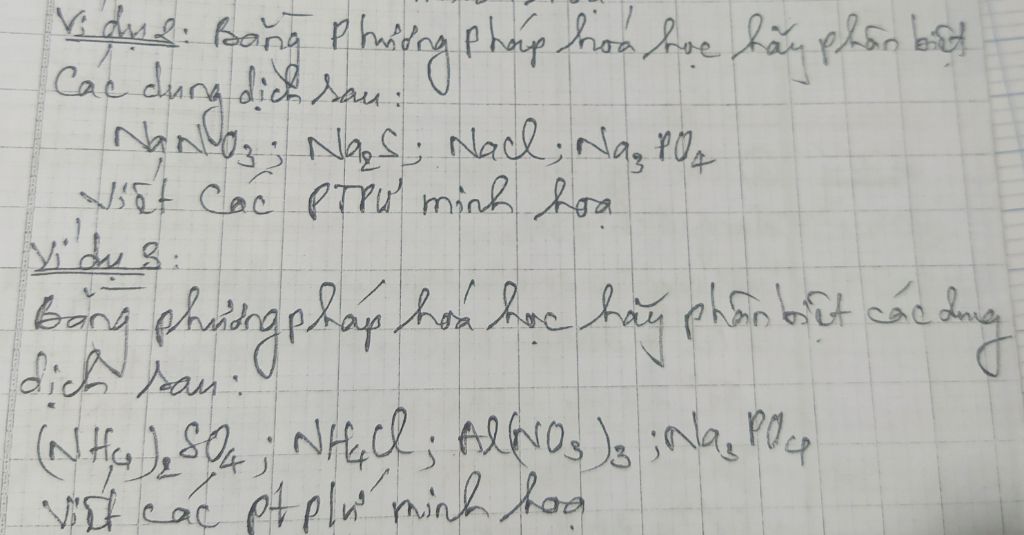 Ví dụ 2: Bằng phương pháp hoá học hãy phân biệt
Các dung dịch sau:
NaNO₃; Na₂S; NaCl; Na₃PO₄
Viết Các PTPƯ minh hoạ
Ví dụ 3:
Bằng phương pháp hoá học hãy phân biệt các dung
dịch sau:
(NH₄)₂SO₄; NH₄Cl; Al(NO₃)₃; Na₃PO₄
Viết các ptpư minh hoạ